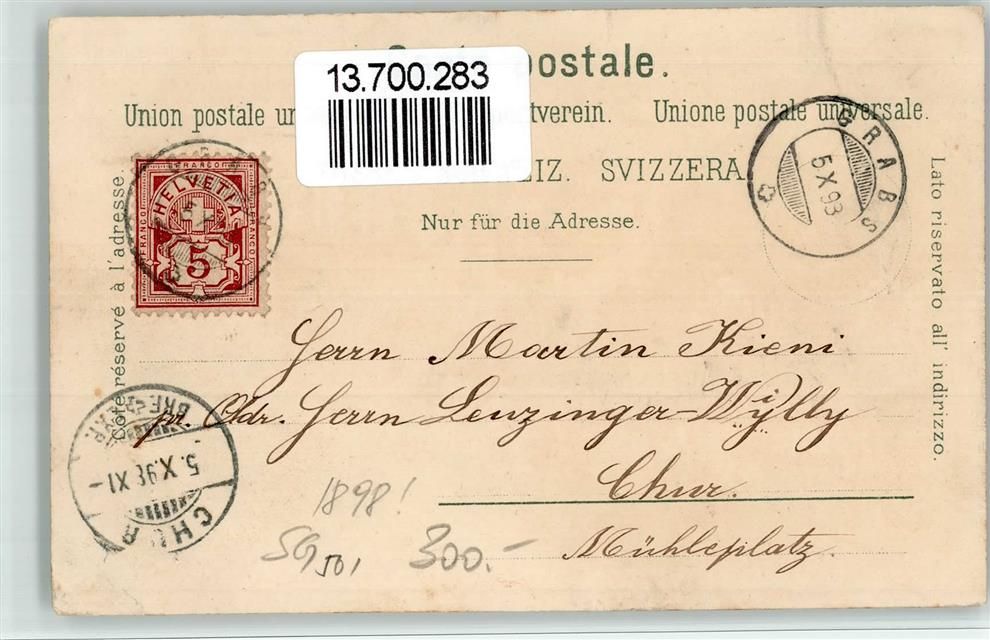 13.700.283
postale.
Union postale un tverein. Unione postale universale.
IZ. SVIZZERA.
Nur für die Adresse.
Côté réservé à l'adresse.
Lato riservato all' indirizzo.
FRANCO
FRANCO HELVETIA FRANCO
5
GRABS
5 X 98
Herrn Martin Kieni
pr. Adr. Herrn Lenzinger-Wylly
Chur.
Mühleplatz.
5. X. 98 XI-
CHUR
1898!
SG 501
300.-